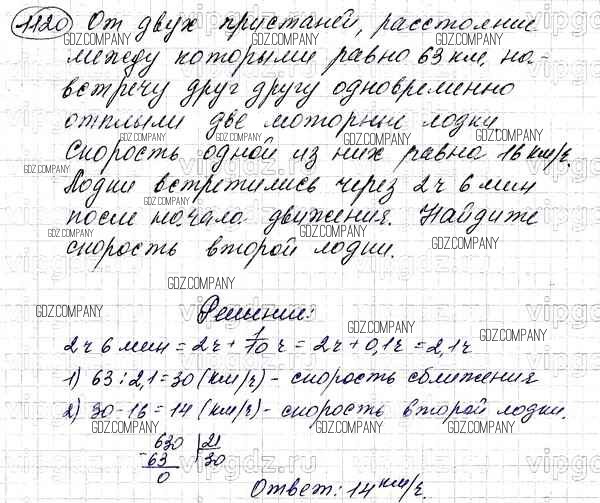 1120 От двух пристаней, расстояние
между которыми равно 63 км, на-
встречу друг другу одновременно
отплыли две моторные лодки
Скорость одной из них равна 16 км/г.
Лодки встретились через 2 ч 6 мин
после начала движения. Найдите
скорость второй лодки.
Решение:
2 ч 6 мин = 2 ч + 1/10 ч = 2 ч + 0,1 ч = 2,1 ч
1) 63 : 2,1 = 30 (км/ч) - скорость сближения
2) 30 - 16 = 14 (км/ч) - скорость второй лодки.
630 21
- 63 30
0
Ответ: 14 км/ч.
GDZ.COMPANY
vipgdz.ru